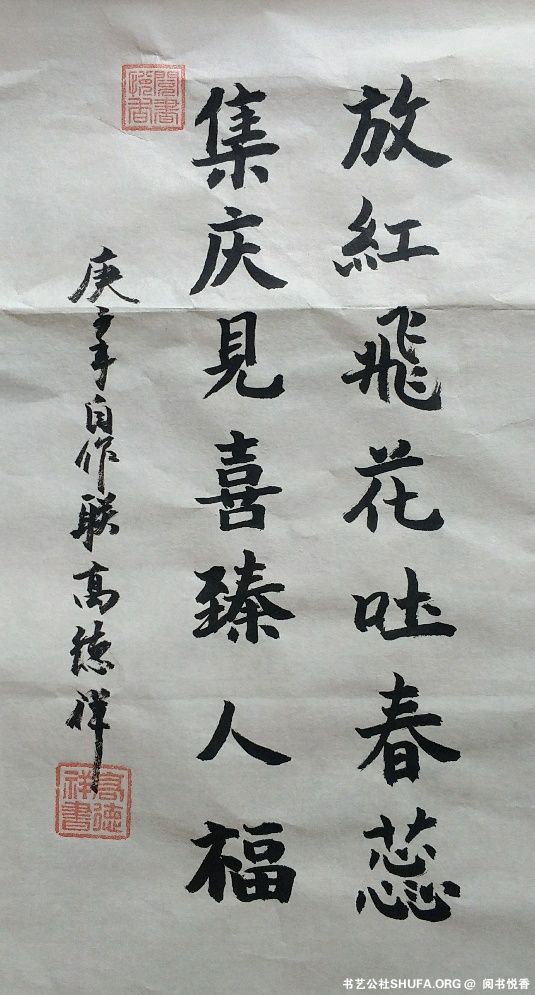 放紅飛花吐春蕊
集庆見喜臻人福
庚子年自作联高德祥
閱書悅香
高德祥書
书艺公社SHUFA.ORG @ 阅书悦香